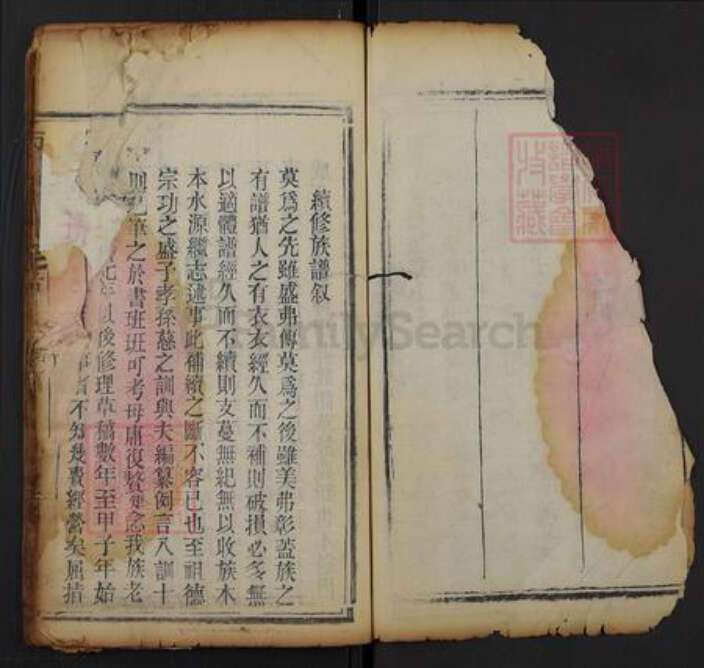 續修族譜叙
莫爲之先雖盛弗傳莫爲之後雖美弗彰蓋族之
有譜猶人之有衣衣經久而不補則破損必多無
以適體譜經久而不續則支蔓無紀無以收族木
本水源繼志述事此補續之斷不容已也至祖德
宗功之盛子孝孫慈之訓與夫編纂例言八訓十
則已筆之於書班班可考毋庸復贅念我族老
年以後修理草稿數年至甲子年始
不知幾費經營矣屈指
FamilySearch